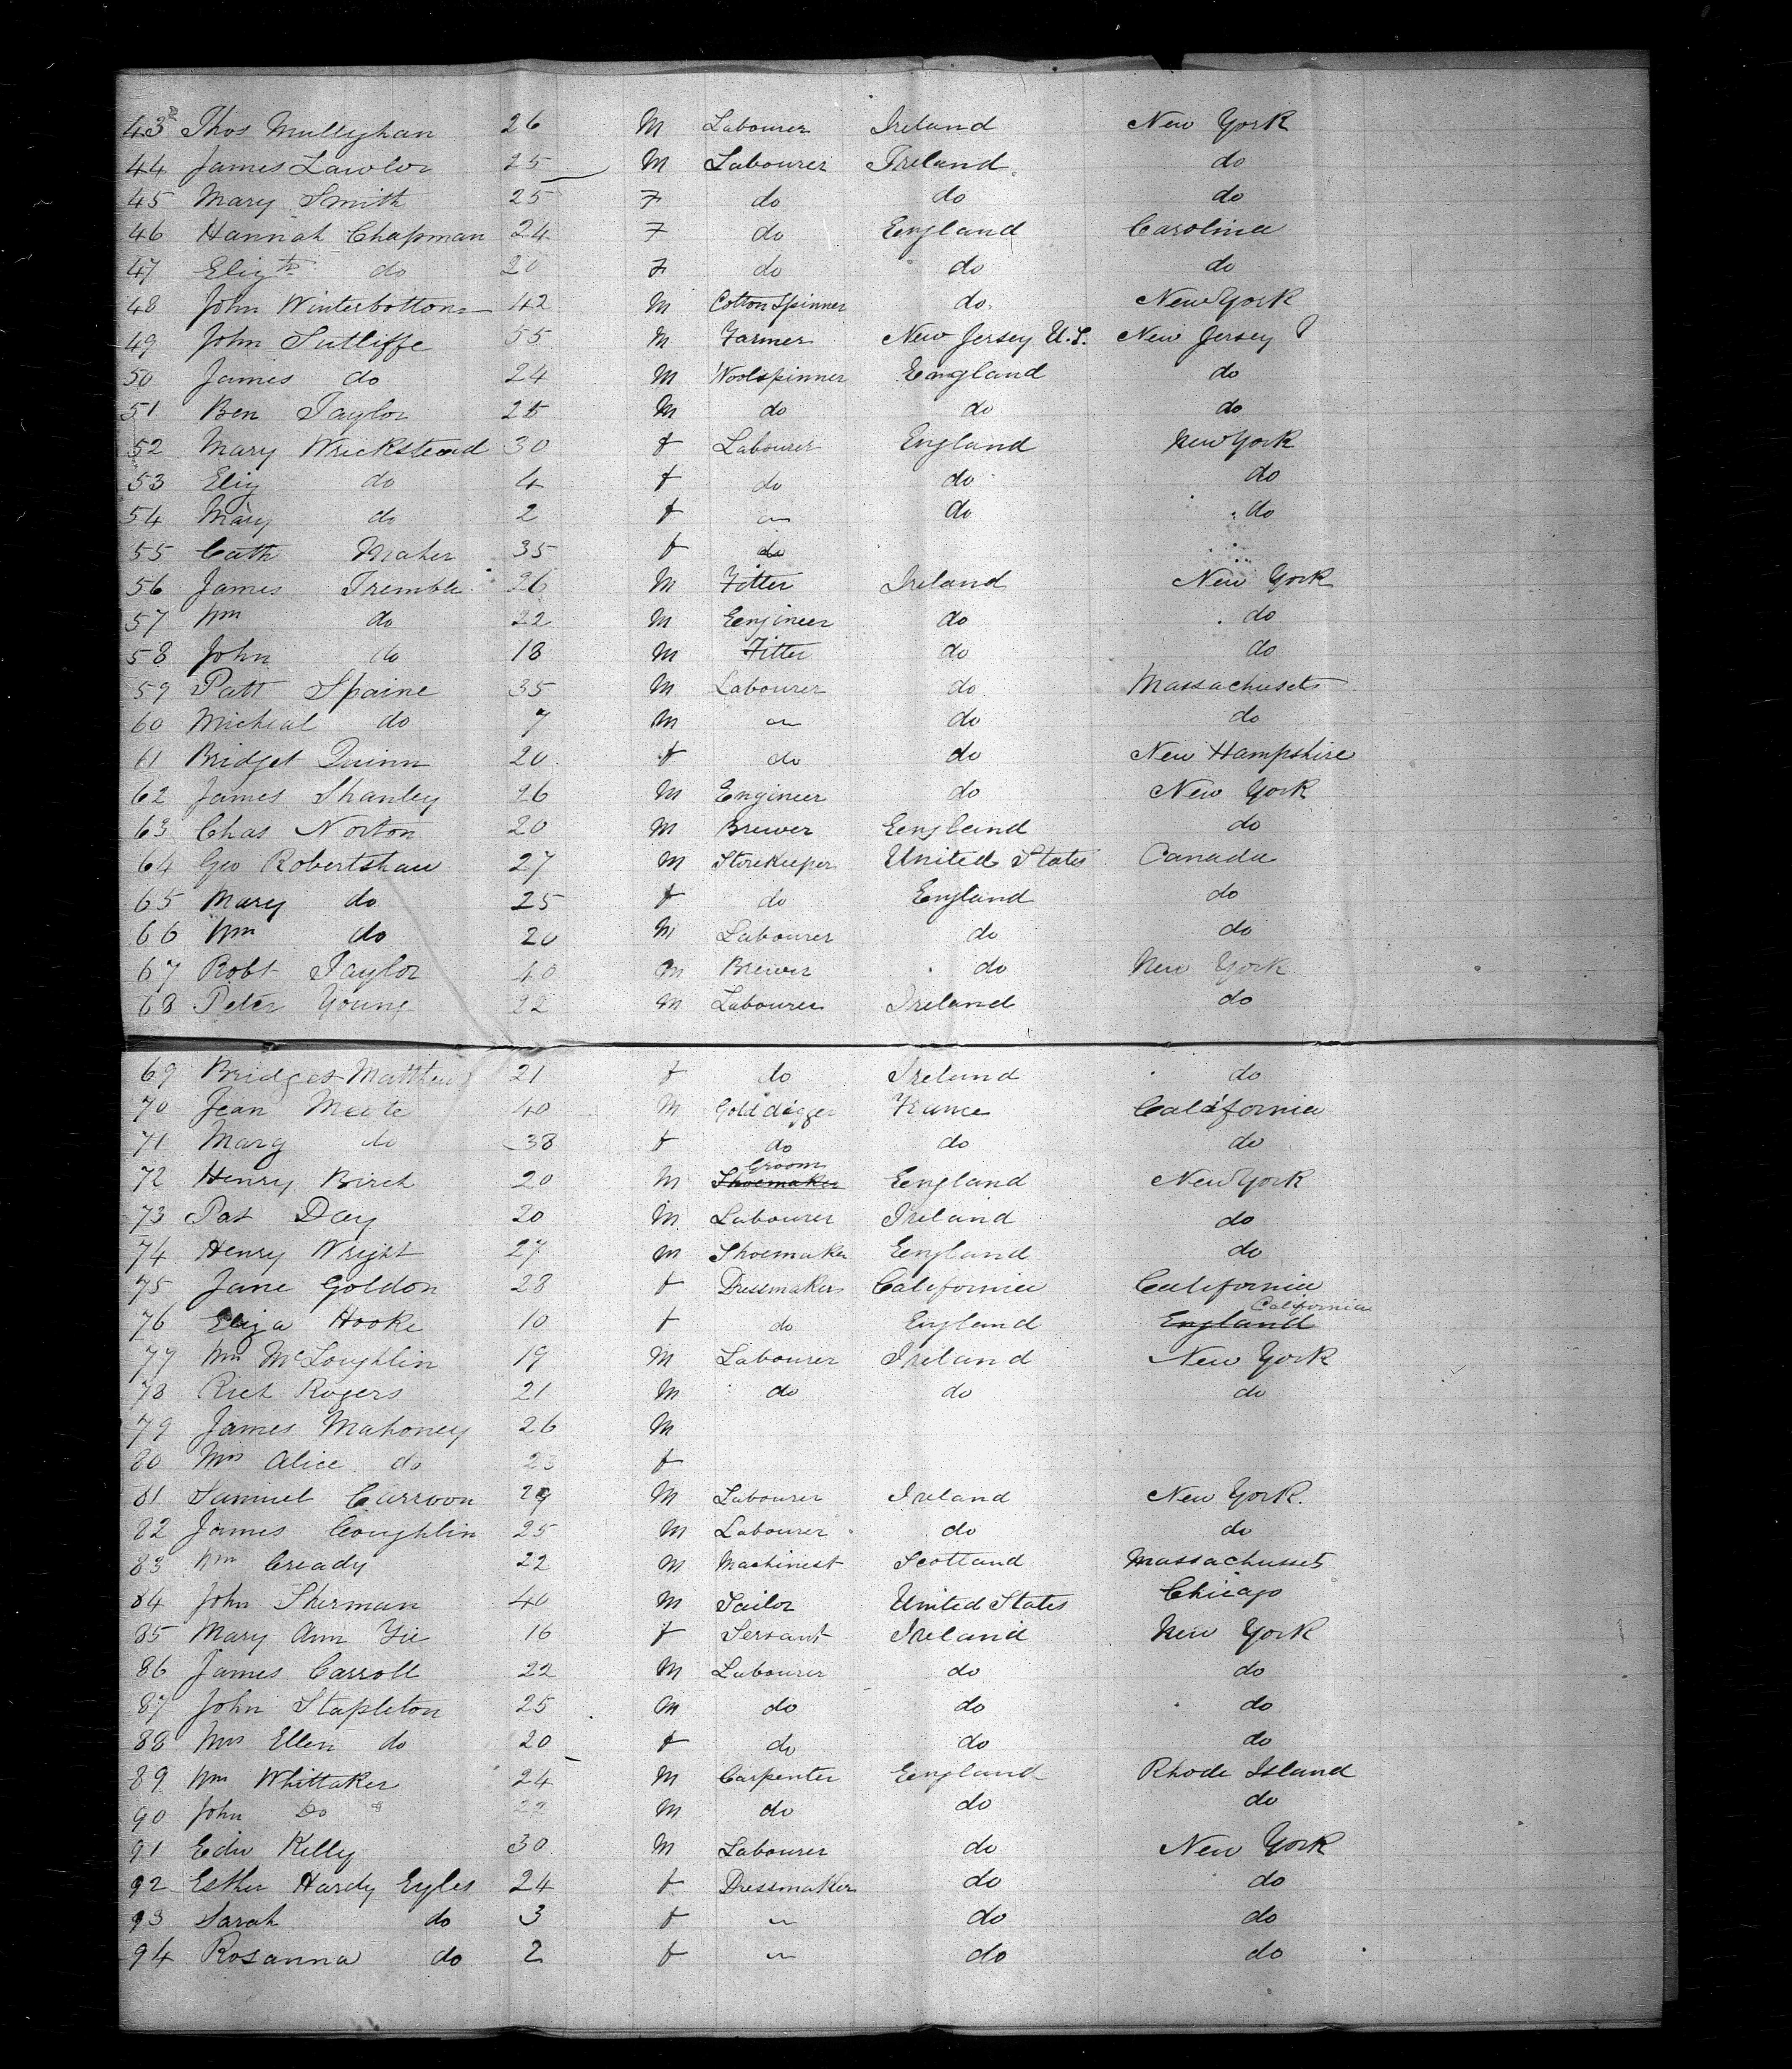 43 Thos Mullyhan 26 M Labourer Ireland New York
44 James Lawlor 25 M Labourer Ireland do
45 Mary Smith 25 F do do do
46 Hannah Chapman 24 F do England Carolina
47 Elizth do 20 F do do do
48 John Winterbottom 42 M Cotton Spinner do. New York
49 John Sutliffe 55 M Farmer New Jersey U.S. New Jersey
50 James do 24 M Woolspinner England do
51 Ben Taylor 25 M do do do
52 Mary Wricksteand 30 f Labourer England New York
53 Eliz do 4 f do do do
54 Mary do 2 f " do do
55 Cath Maher 35 f do
56 James Tremble 26 M Fitter Ireland New York
57 Wm do 22 M Eengineer do do
58 John do 18 M Fitter do do
59 Patt Spaine 35 M Labourer do Massachusets
60 Micheal do 7 M " do do
61 Bridget Quinn 20 f do do New Hampshire
62 James Shanley 26 M Engineer do New York
63 Chas Norton 20 M Brewer Eengland do
64 Geo Robertshaw 27 M Storekeeper United States Canada
65 Mary do 25 f do England do
66 Wm do 20 M Labourer do do
67 Robt Taylor 40 M Brewer do New York
68 Peter Young 22 M Labourer Ireland do
69 Bridget Matthews 21 f do Ireland do
70 Jean 40 M Gold digger France California
71 Mary do 38 f do do do
72 Henry Birch 20 M Shoemaker Groom Eengland New York
73 Pat Day 20 M Labourer Ireland do
74 Henry Wright 27 M Shoemaker Eengland do
75 Jane Goldon 28 f Dressmaker California California
76 Eliza Hooke 10 f do England England California
77 Wm McLoughlin 19 M Labourer Ireland New York
78 Rich Rogers 21 M do do do
79 James Mahoney 26 M
80 Mrs Alice do 23 f
81 Samuel Carroon 29 M Labourer Ireland New York.
82 James Coughlin 25 M Labourer do do
83 Wm Cready 22 M Machinest Scotland Massachussets
84 John Sherman 40 M Sailor United States Chicago
85 Mary Ann 16 f Servant Ireland New York
86 James Carroll 22 M Labourer do do
87 John Stapleton 25 M do do do
88 Mrs Ellen do 20 f do do do
89 Wm Whittaker 24 M Carpenter Eengland Rhode Island
90 John Do 22 M do do do
91 Edw Kelly 30 M Labourer do New York
92 Esther Hardy Eyles 24 f Dressmaker do do
93 Sarah do 3 f " do do
94 Rosanna do 2 f " do do